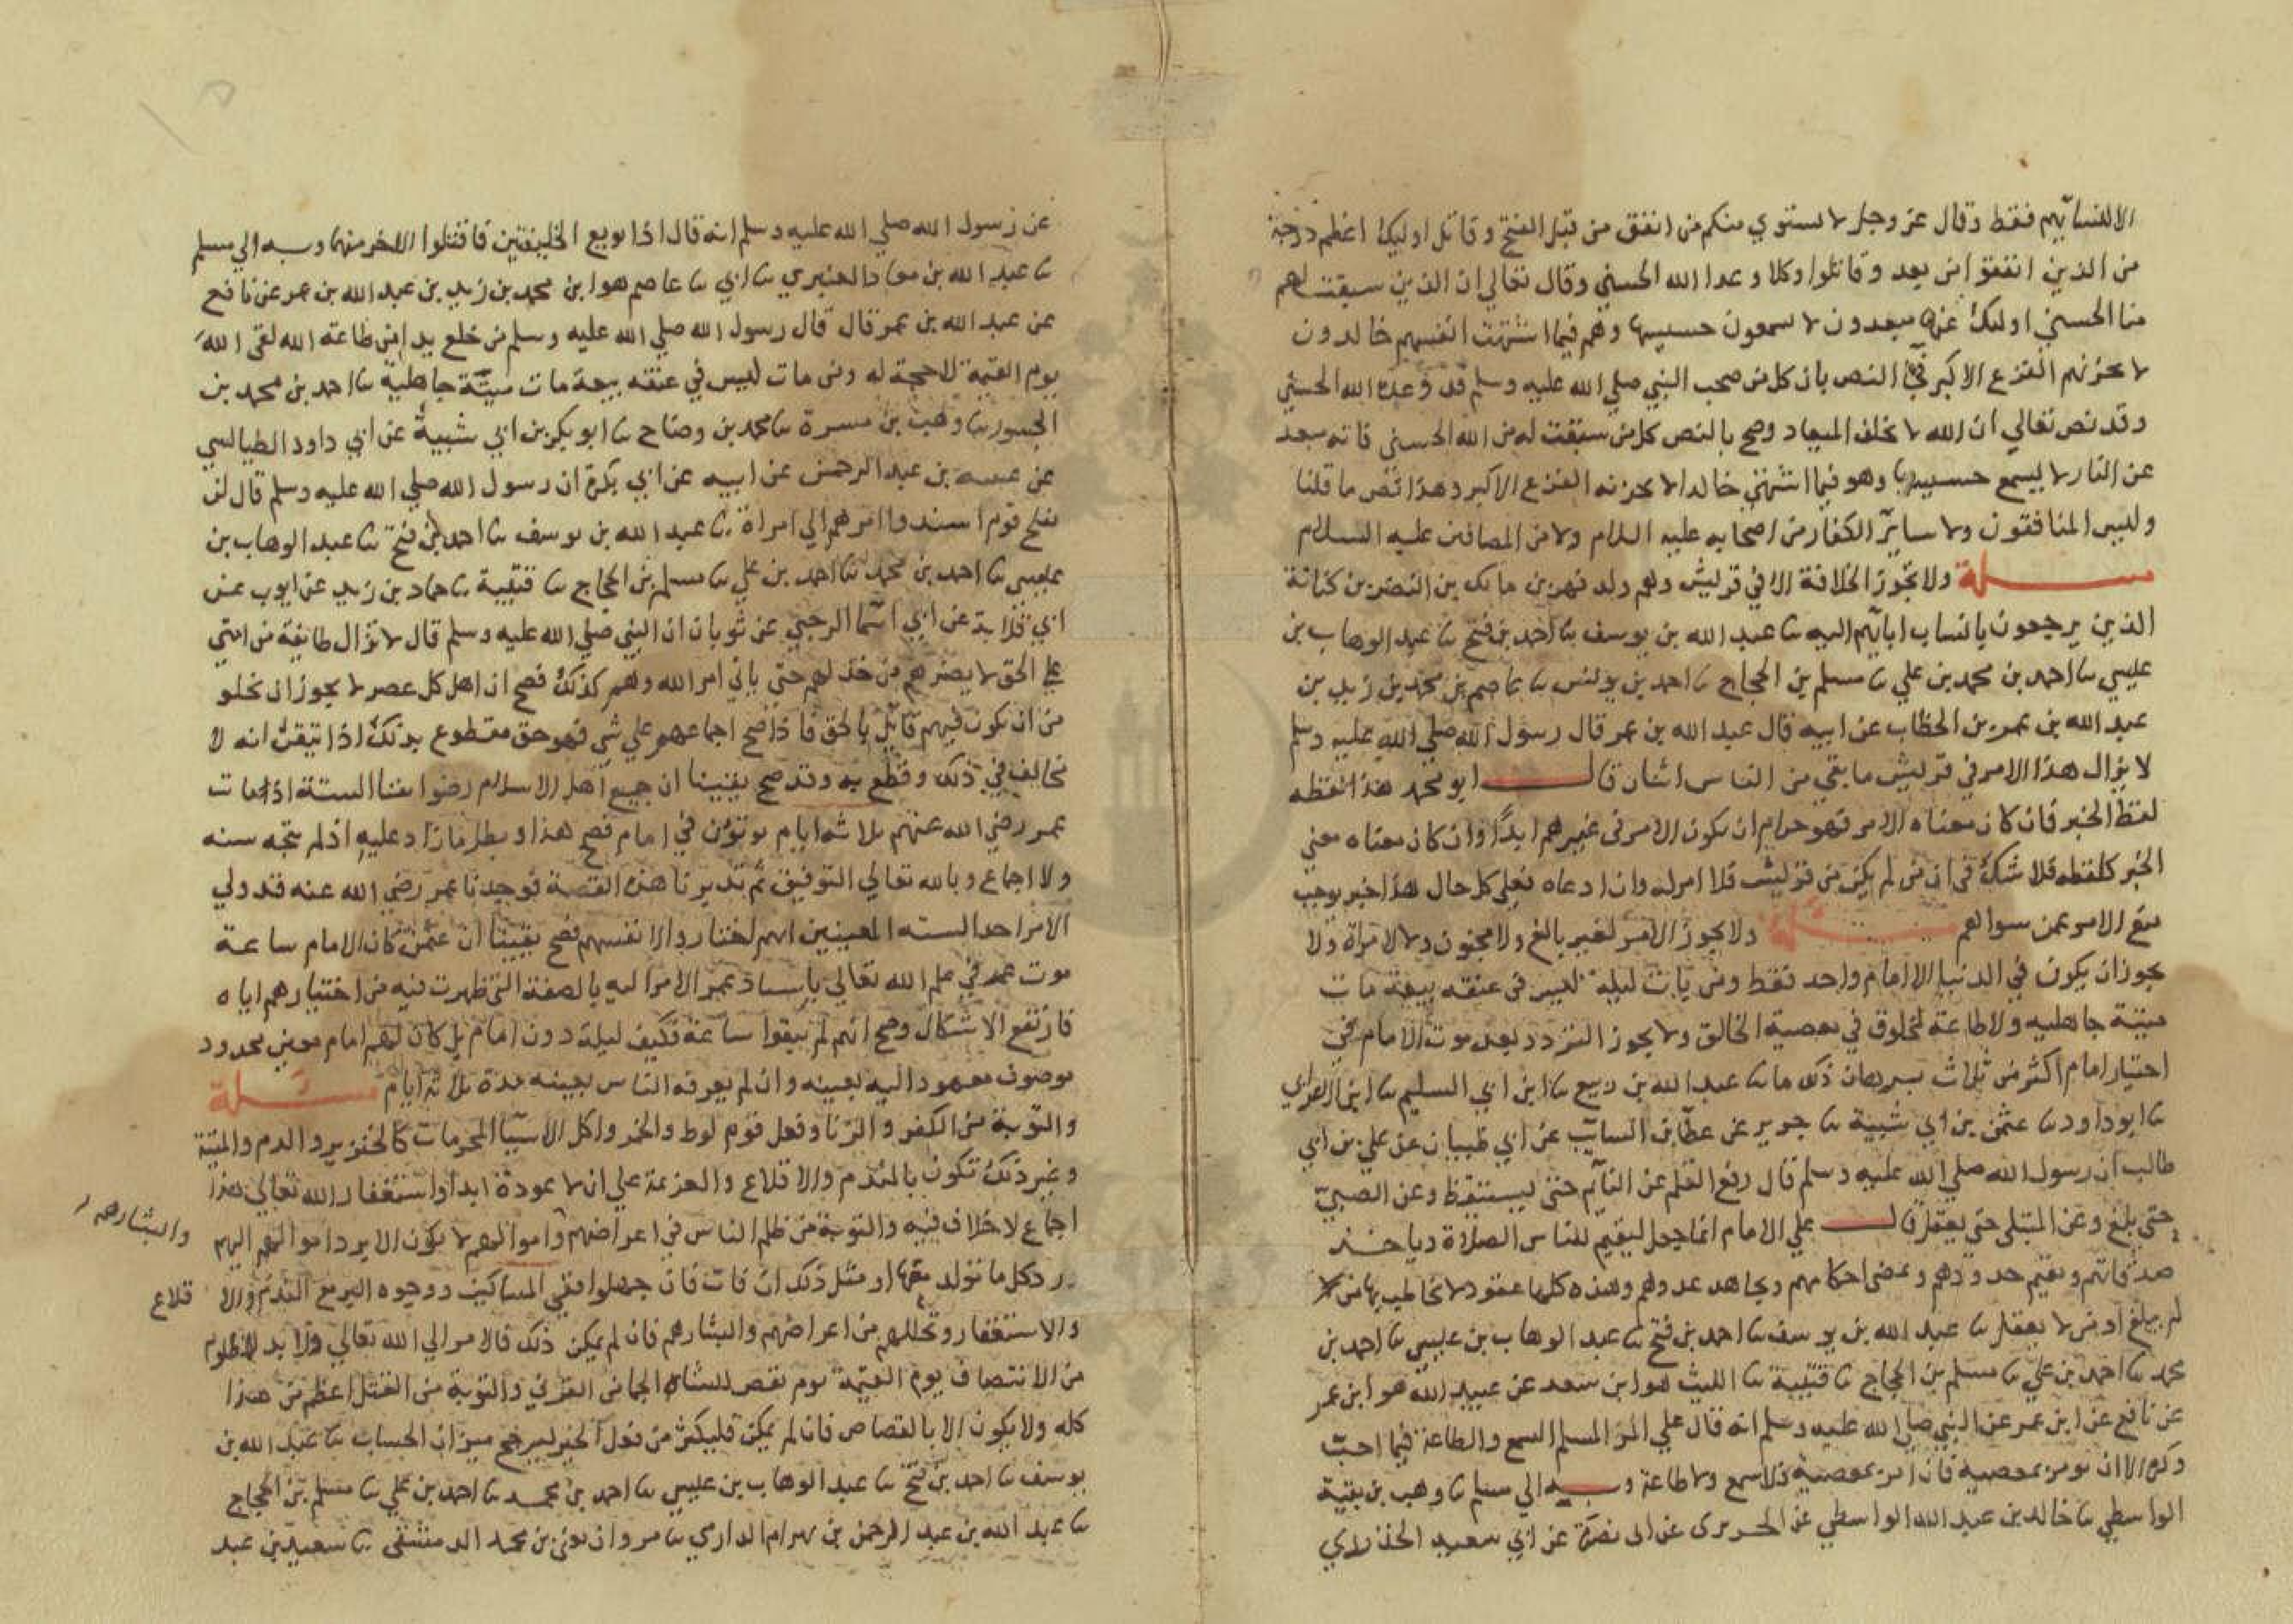 الا للنسائهم فقط وقال عز وجل لا يستوي منكم من انفق من قبل الفتح وقاتل اوليك اعظم درجة
من الذين انفقوا من بعد وقاتلوا وكلا وعد الله الحسني وقال تعالي ان الذين سبقت لهم
منا الحسني اوليك عنها مبعدون لا يسمعون حسيسها وهم فيما اشتهت انفسهم خالدون
لا يحزنهم الفزع الاكبر فجا النص بان كل من صحب النبي صلي الله عليه وسلم قد وعده الله الحسني
وقد نص تعالي ان الله لا يخلف الميعاد وصح بالنص كل من سبقت له من الله الحسنى فانه مبعد
عن النار لا يسمع حسيسها وهو فيما اشتهي خالد لا يحزنه الفزع الاكبر وهذا نص ما قلنا
وليس المنافقون ولا ساير الكفار من اصحابه عليه السلام ولا من المضافين عليه السلام
مسلة ولا تجوز الخلافة الا في قريش وهم ولد فهر بن مالك بن النضر بن كنانة
الذين يرجعون بانساب ابايهم اليه نا عبد الله بن يوسف نا احمد بن فتح نا عبد الوهاب بن
عليسي نا احمد بن محمد بن علي نا مسلم بن الحجاج نا احمد بن يونس نا عاصم بن محمد بن زيد بن
عبد الله بن عمر بن الخطاب عن ابيه قال عبد الله بن عمر قال رسول الله صلي الله عليه وسلم
لا يزال هذا الامر في قريش ما بقي من الناس اثنان قال ابو محمد هذا لفظه
لفظ الخبر فان كان معناه الامر فهو حرام ان يكون الامر في غيرهم ابدا وان كان معناه معني
الخبر كلفظه فلا شك في ان من لم يكن من قريش فلا امر له وان ادعاه فعلي كل حال هذا خبر يوجب
منع الامر عمن سواهم مسئلة ولا يجوز الامر لغير بالغ ولا مجنون ولا امراة ولا
يجوز ان يكون في الدنيا الا امام واحد فقط ومن بات ليلة ليس في عنقه بيعة مات
ميتة جاهليه ولا طاعة لمخلوق في معصية الخالق ولا يجوز التردد بعد موت الامام في
اختيار امام اكثر من ثلاث برهان ذلك ما نا عبد الله بن ربيع نا ابن ابي السليم نا ابن الاعرابي
نا ابو داود نا عثمن بن ابي شيبة نا جرير عن عطا بن السايب عن ابي ظبيان عن علي بن ابي
طالب ان رسول الله صلي الله عليه وسلم قال رفع القلم عن النايم حتى يستيقظ وعن الصبي
حتي يبلغ وعن المبتلى حتي يعقل قال علي الامام انما جعل ليقيم للناس الصلاة وياخذ
صدقاتهم ويقيم حدودهم ويمضي احكامهم ويجاهد عدوهم وهذه كلها عقود لا يخاطب بها من لا
لم يبلغ او من لا يعقل نا عبد الله بن يوسف نا احمد بن فتح نا عبد الوهاب بن عليسي نا احمد بن
محمد نا احمد بن علي نا مسلم بن الحجاج نا قتيبة نا الليث هو ابن سعد عن عبيد الله هو ابن عمر
عن نافع عن ابن عمر عن النبي صلي الله عليه وسلم انه قال علي المرء المسلم السمع والطاعة فيما احب
وكره الا ان يومر بمعصية فان امر بمعصية فلا سمع ولا طاعة وبه الي مسلم نا وهب بن بقية
الواسطي نا خالد بن عبد الله الواسطي عن الجريري عن ابي نضرة عن ابي سعيد الخدري
عن رسول الله صلي الله عليه وسلم انه قال اذا بويع الخليفتين فاقتلوا الاخر منهما وبه الي مسلم
نا عبيد الله بن معاذ العنبري نا ابي نا عاصم هو ابن محمد بن زيد بن عبد الله بن عمر عن نافع
عن عبد الله بن عمر قال قال رسول الله صلي الله عليه وسلم من خلع يدا من طاعة الله لقي الله
يوم القيمة لا حجة له ومن مات ليس في عنقه بيعة مات ميتة جاهلية نا احمد بن محمد بن
الجسور نا وهب بن مسرة نا محمد بن وضاح نا ابو بكر بن ابي شيبة عن ابي داود الطيالسي
عن عيينة بن عبد الرحمن عن ابيه عن ابي بكرة ان رسول الله صلي الله عليه وسلم قال لن
يفلح قوم اسندوا امرهم الي امراة نا عبد الله بن يوسف نا احمد بن فتح نا عبد الوهاب بن
عليسي نا احمد بن محمد نا احمد بن علي نا مسلم بن الحجاج نا قتيبة نا حماد بن زيد عن ايوب عن
ابي قلابة عن ابي اسما الرحبي عن ثوبان ان النبي صلي الله عليه وسلم قال لا تزال طايفة من امتي
علي الحق لا يضرهم من خذلهم حتي ياتي امر الله وهم كذلك فصح ان اهل كل عصر لا يجوز ان يخلو
من ان يكون فيهم قايل بالحق فاذا صح اجماعهم علي شي فهو حق مقطوع بذلك اذا تيقن انه لا
مخالف في ذلك وقطع به وقد صح يقينا ان جميع اهل الاسلام رضوا بقا الستة اذ مات
عمر رضي الله عنهم ثلاثة ايام يرتؤن في امام فصح هذا وبطل ما زاد عليه اذ لم تتجه سنه
ولا اجماع وبالله تعالي التوفيق ثم تدبرنا هذه القصة فوجدنا عمر رضي الله عنه قد ولي
الامر احد الستة المعينين ايهم اختاروا لانفسهم فصح يقينا ان عثمن كان الامام ساعة
موت عمر في علم الله تعالي باسناد عمر الامر اليه بالصفة التي ظهرت فيه من اختيارهم اياه
فارتفع الاشكال وصح انهم لم يبقوا ساعة فكيف ليلة دون امام بل كان لهم امام معين محدود
موصوف معهود اليه بعينه وان لم يعرفه الناس بعينه مدة ثلاثة ايام مسئلة
والتوبة من الكفر والزنا وفعل قوم لوط والخمر واكل الاشيا المحرمات كالخنزير والدم والميتة
وغير ذلك تكون بالندم والاقلاع والعزيمة علي ان لا عودة ابدا واستغفار الله تعالي هذا
اجماع لا خلاف فيه والتوبة من ظلم الناس في اعراضهم واموالهم لا يكون الا برد اموالهم اليهم
والبشارهم
ورد كل ما تولد منها او مثل ذلك ان فات فان جهلوا ففي المساكين ووجوه البر مع الندم والا
قلاع
والاستغفار وتحللهم من اعراضهم والبشارهم فان لم يمكن ذلك فالامر الي الله تعالي ولا بد للمظلوم
من الانتصاف يوم القيمة يوم يقص للشاة الجما من القرني والتوبة من القتل اعظم من هذا
كله ولا يكون الا بالقصاص فان لم يمكن فليكثر من فعل الخير ليرجح ميزان الحسنات نا عبد الله بن
يوسف نا احمد بن فتح نا عبد الوهاب بن عليسي نا احمد بن محمد نا احمد بن علي نا مسلم بن الحجاج
نا عبد الله بن عبد الرحمن بن بهرام الدارمي نا مروان يعني بن محمد الدمشقي نا سعيد بن عبد